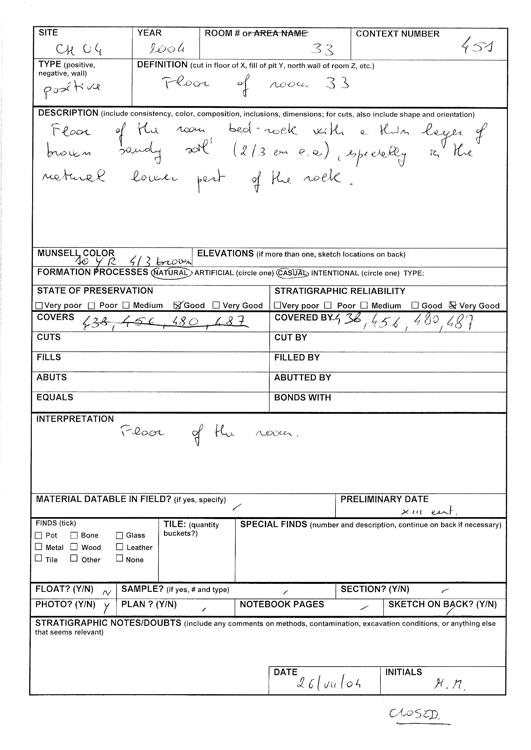 SITE YEAR ROOM # or AREA NAME CONTEXT NUMBER
CH 04 2004 33 451
TYPE (positive, negative, wall) DEFINITION (cut in floor of X, fill of pit Y, north wall of room Z, etc.)
positive Floor of room 33
DESCRIPTION (include consistency, color, composition, inclusions, dimensions; for cuts, also include shape and orientation)
Floor of the room bed-rock with a thin layer of
brown sandy soil (2/3 cm c.a), especially in the
natural lower part of the rock.
MUNSELL COLOR ELEVATIONS (if more than one, sketch locations on back)
10 YR 4/3 brown
FORMATION PROCESSES NATURAL ARTIFICIAL (circle one) CASUAL INTENTIONAL (circle one) TYPE:
STATE OF PRESERVATION STRATIGRAPHIC RELIABILITY
Very poor Poor Medium Good Very Good Very poor Poor Medium Good Very Good
COVERS 438, 456, 480, 487 COVERED BY 438, 456, 480, 487
CUTS CUT BY
FILLS FILLED BY
ABUTS ABUTTED BY
EQUALS BONDS WITH
INTERPRETATION
Floor of the room.
MATERIAL DATABLE IN FIELD? (if yes, specify) / PRELIMINARY DATE
XIII cent.
FINDS (tick) TILE: (quantity buckets?) SPECIAL FINDS (number and description, continue on back if necessary)
Pot Bone Glass
Metal Wood Leather
Tile Other None
FLOAT? (Y/N) N SAMPLE? (if yes, # and type) / SECTION? (Y/N) /
PHOTO? (Y/N) Y PLAN ? (Y/N) / NOTEBOOK PAGES / SKETCH ON BACK? (Y/N) /
STRATIGRAPHIC NOTES/DOUBTS (include any comments on methods, contamination, excavation conditions, or anything else
that seems relevant)
DATE INITIALS
26/VII/04 M.M.
CLOSED.